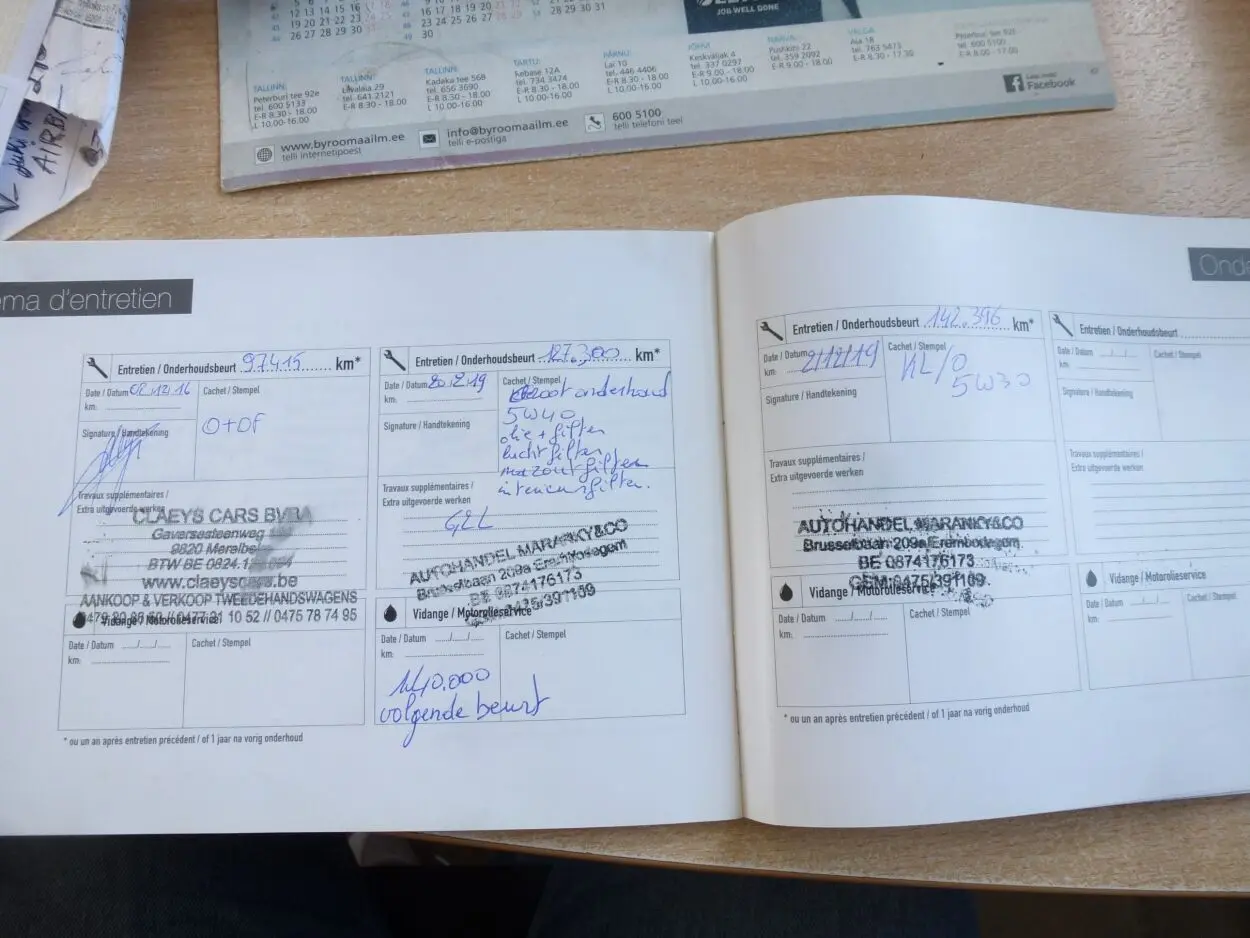 JOB WELL DONE
12 13 14 15 16 17 18
19 20 21 22 23 24 25
26 27 28 29 30
16 17 18 19 20 21 22
23 24 25 26 27 28 29
30
28 29 30 31
TALLINN:
Peterburi tee 92e
tel. 600 5133
E-R 8.30 - 18.00
L 10.00-16.00
TALLINN:
Laulaia 29
tel. 641 2121
E-R 8.30 - 18.00
TALLINN:
Kadaka tee 56B
tel. 656 3690
E-R 8.30 - 18.00
L 10.00-16.00
TARTU:
Rebase 12A
tel. 734 3474
E-R 8.30 - 18.00
L 10.00-16.00
PÄRNU:
Lai 10
tel. 446 4406
E-R 8.30 - 18.00
L 10.00-16.00
JÕHVI
Keskväljak 4
tel. 337 0297
E-R 9.00 - 18.00
L 10.00-16.00
NARVA:
Puškini 22
tel. 359 2092
E-R 9.00 - 18.00
VALGA:
Aia 18
tel. 763 5473
E-R 8.30 - 17.30
tel. 600 5100
E-R 8.00 - 17.00
www.byroomaailm.ee
telli internetipoest
info@byroomaailm.ee
telli e-postiga
600 5100
telli telefoni teel
Facebook
AIRBA
ma d'entretien
Entretien / Onderhoudsbeurt 97415 km*
Date / Datum 02.12.16
km:
Cachet / Stempel
O+OF
Signature / Handtekening
Travaux supplémentaires /
Extra uitgevoerde werken
CLAEYS CARS BVBA
Gaversesteenweg
9820 Merelbe
BTW BE 0824.
www.claeyscars.be
AANKOOP & VERKOOP TWEEDEHANDSWAGENS
10 52 // 0475 78 74 95
Vidange / Motorolieservice
Date / Datum
km:
Cachet / Stempel
* ou un an après entretien précédent / of 1 jaar na vorig onderhoud
Entretien / Onderhoudsbeurt 127.300 km*
Date / Datum 20.2.19
km:
Cachet / Stempel
Groot onderhoud
5W40
olie + filter
lucht filter
mazout filter
interieurfilter.
Signature / Handtekening
Travaux supplémentaires /
Extra uitgevoerde werken
6,2L
AUTOHANDEL MARANKY&CO
Brusselbaan 209a Erembodegem
BE 0874176173
0475/391109
Vidange / Motorolieservice
Date / Datum
km:
Cachet / Stempel
140.000
volgende beurt
Onde
Entretien / Onderhoudsbeurt 142.396 km*
Date / Datum 2/12/19
km:
Cachet / Stempel
KL/O
5W30
Signature / Handtekening
Travaux supplémentaires /
Extra uitgevoerde werken
AUTOHANDEL MARANKY&CO
Brusselbaan 209a/Erembodegem
BE 0874176173
GSM:0475/391109
Vidange / Motorolieservice
Date / Datum
km:
Cachet / Stempel
* ou un an après entretien précédent / of 1 jaar na vorig onderhoud
Entretien / Onderhoudsbeurt
Date / Datum
km:
Cachet / Stempel
Signature / Handtekening
Travaux supplémentaires /
Extra uitgevoerde werken
Vidange / Motorolieservice
Date / Datum
km:
Cachet / Stempel